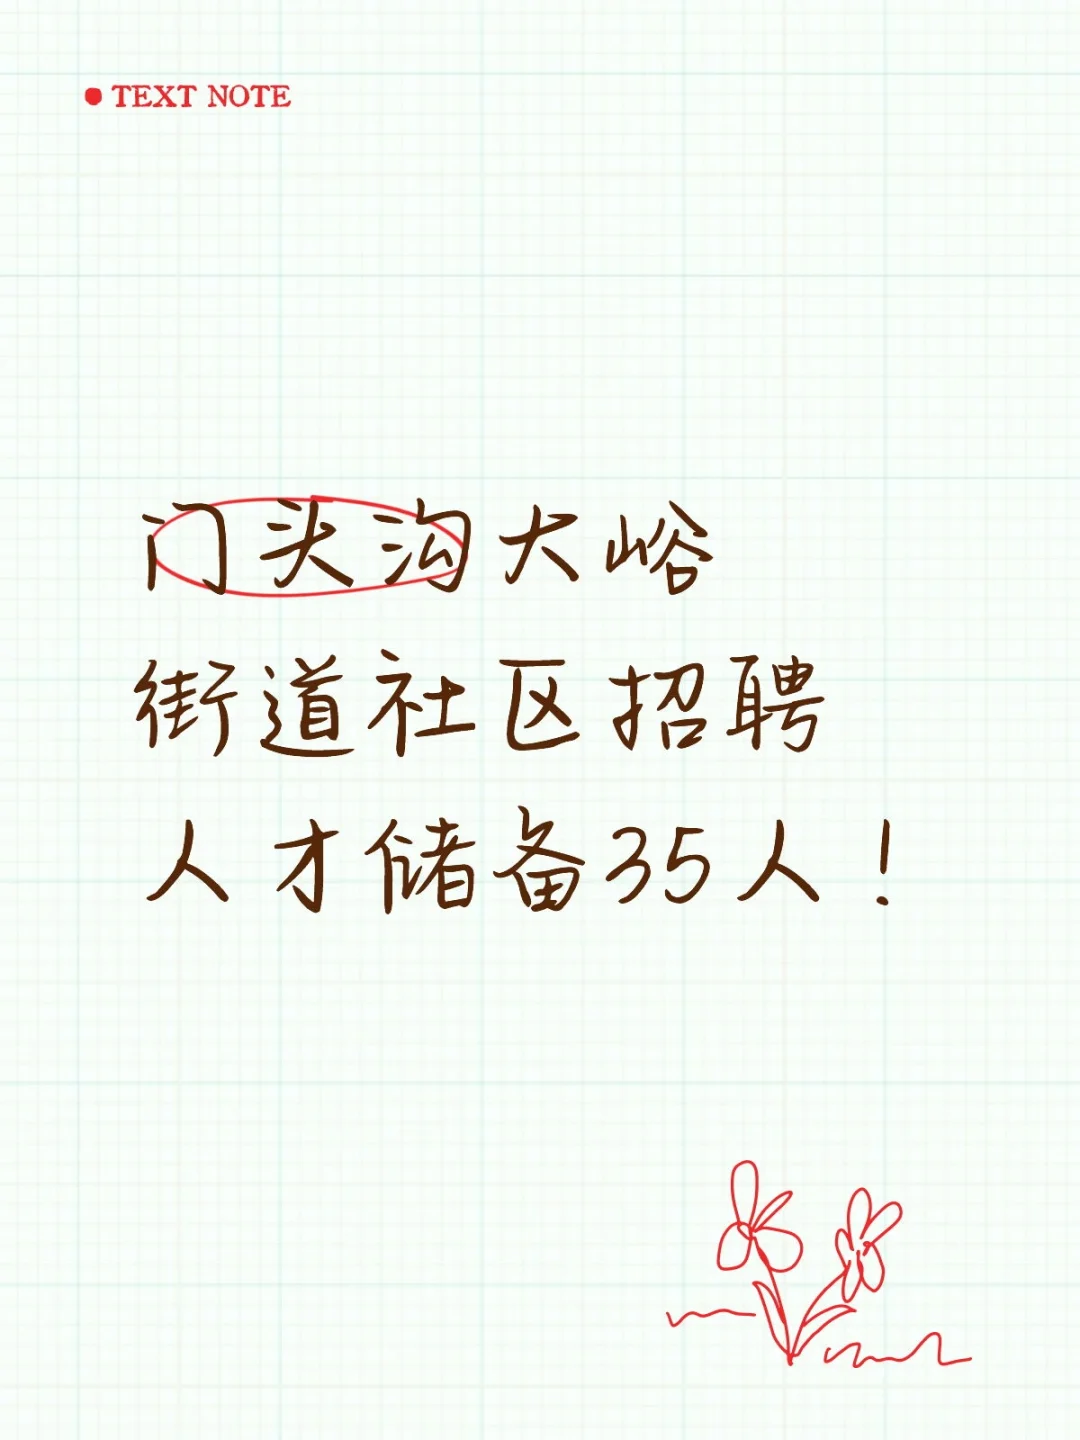 TEXT NOTE
门头沟大峪
街道社区招聘
人才储备35人！